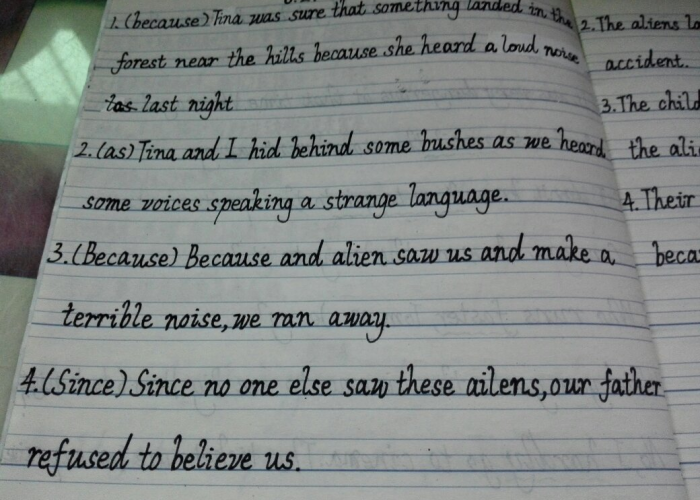 1. (because) Tina was sure that something landed in the
forest near the hills because she heard a loud noise
las last night
2. (as) Tina and I hid behind some bushes as we heard
some voices speaking a strange language.
3. (Because) Because and alien saw us and make a
terrible noise, we ran away.
4. (Since) Since no one else saw these ailens, our father
refused to believe us.
2. The aliens
accident.
3. The child
the
4. Their